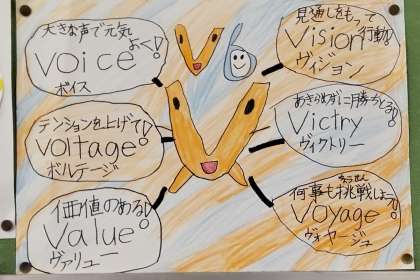 大きな声で元気
よく!
voice
ボイス
テンションを上げて!
voltage
ボルテージ
価値のある!
Value
ヴァリュー
V6
見通しをもって
行動!
Vision
ヴィジョン
あきらめずに勝ちとる!
Victry
ヴィクトリー
ちょうせん
何事も挑戦しよう!
Voyage
ヴォヤージュ